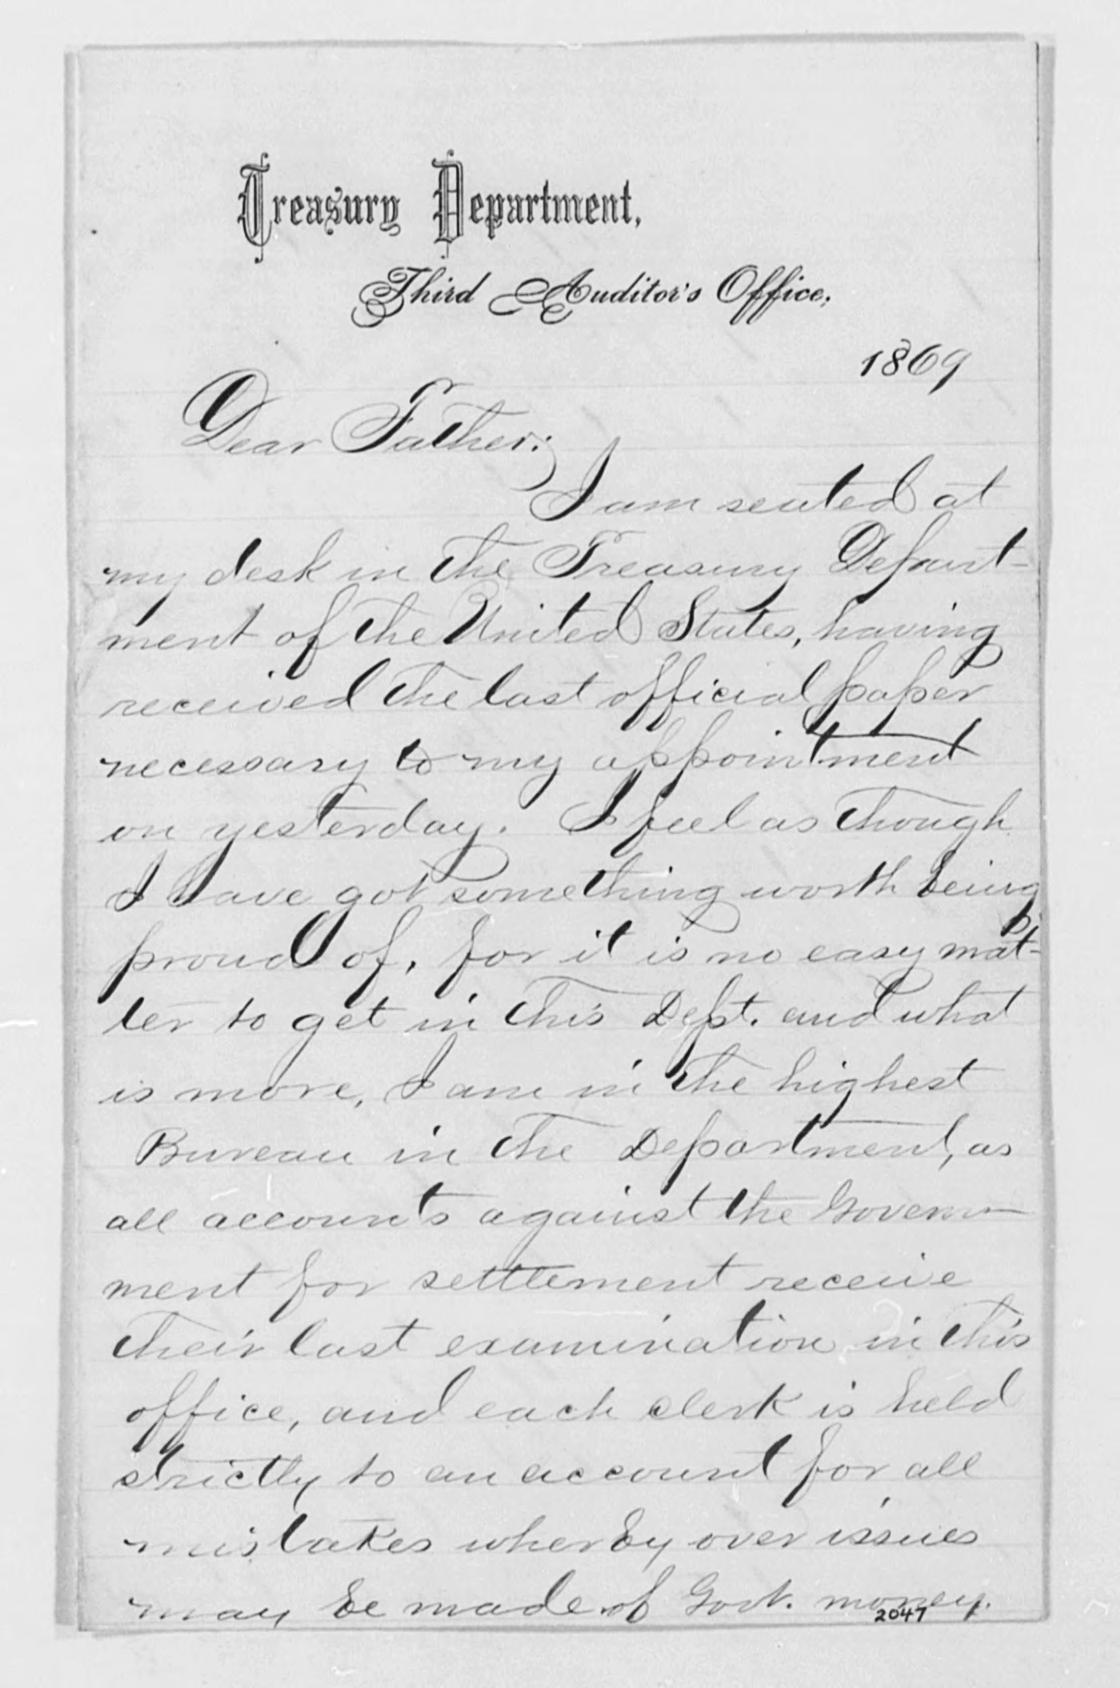 Treasury Department,
Third Auditor's Office,
1869
Dear Father:
I am seated at
my desk in the Treasury Depart-
ment of the United States, having
received the last official paper
necessary to my appointment
on yesterday. I feel as though
I have got something worth being
proud of, for it is no easy mat-
ter to get in this Dept. and what
is more, I am in the highest
Bureau in the Department, as
all accounts against the Govern-
ment for settlement receive
their last examination in this
office, and each clerk is held
strictly to an account for all
mistakes wherby over issues
may be made of Govt. money.
2047